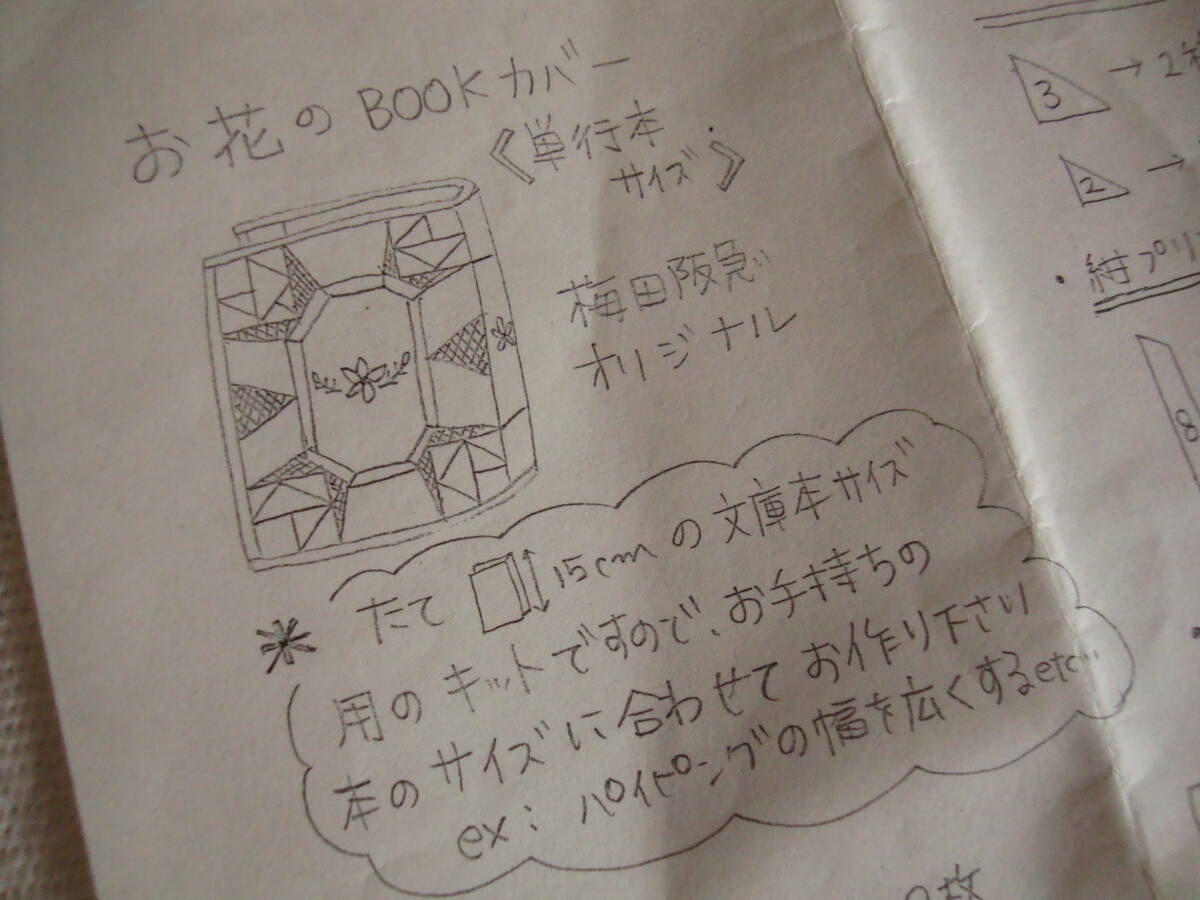 お花のBOOKカバー
《単行本
サイズ》
梅田阪急
オリジナル
* たて 15cmの文庫本サイズ
用のキットですので、お手持ちの
本のサイズに合わせてお作り下さい
ex: パイピングの幅を広くするetc…
3 → 2
2 →
・紺プリ
8
枚